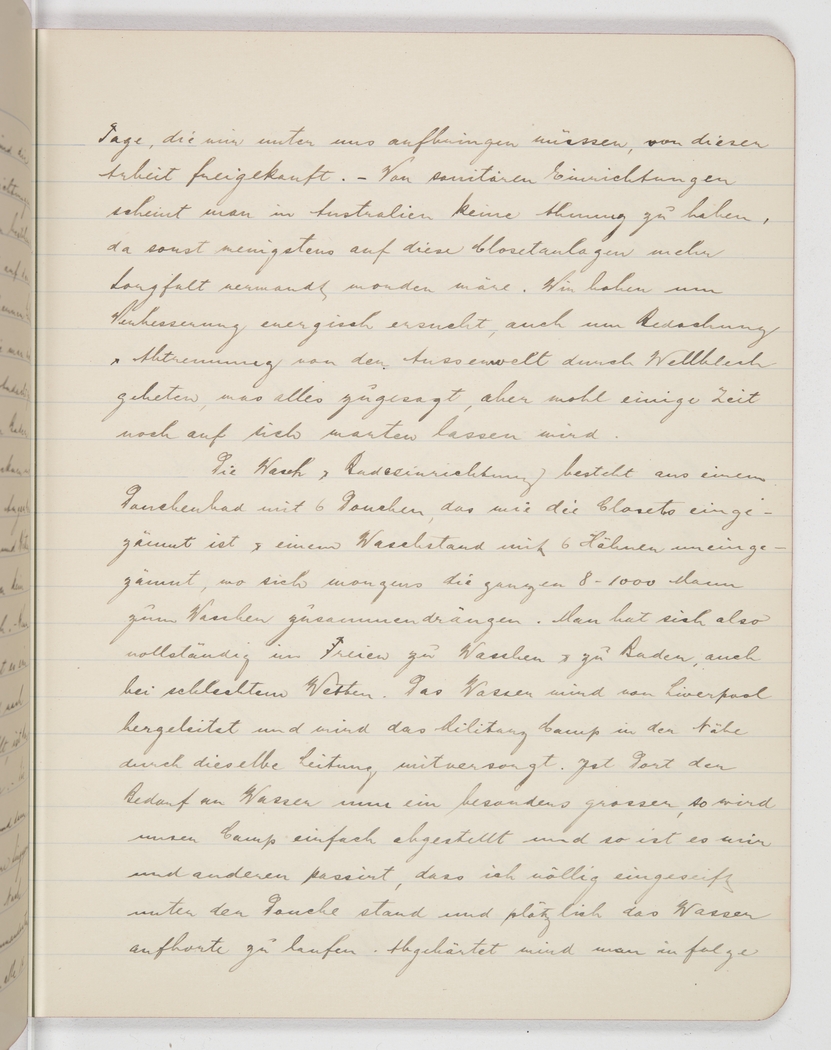 Tage, die wir unter uns aufbringen müsssen, von dieser
Arbeit freigekauft. - Von sanitären Einrichtungen
scheint man in Australien keine Ahnung zu haben,
da sonst wenigstens auf diese Closetanlagen mehr
Sorgfalt verwandt worden wäre. Wir haben um
Verbesserung energisch ersucht, auch um Bedachung
& Abtrennung von der Aussenwelt durch Wellblech
gebeten, was alles zugesagt, aber wohl einige Zeit
noch auf sich warten lassen wird.
Die Wasch & Badeeinrichtung besteht aus einem
Douchenbad mit 6 Douchen, das wie die Closets einge-
zäunt ist & einem Waschstand mit 6 Hähnen uneinge-
zäunt, wo sich morgens die ganzen 8-1000 Mann
zum Waschen zusammendrängen. Man hat sich also
vollständig im Freien zu Waschen & zu Baden, auch
bei schlechtem Wetter. Das Wasser wird von Liverpool
hergeleitet und wird das Military Camp in der Nähe
durch dieselbe Leitung mitversorgt. Ist Dort der
Bedarf an Wasser nun ein besonders grosser, so wird
unser Camp einfach abgestellt und so ist es mir
und anderen passirt, dass ich völlig eingeseift
unter der Douche stand und plötzlich das Wasser
aufhorte zu laufen. Abgehärtet wird man in folge